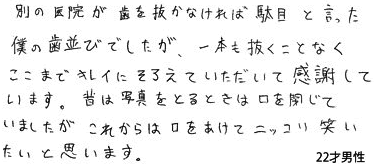 別の医院が 歯を抜かなければ 駄目 と言った
僕の歯並びでしたが、一本も抜くことなく
ここまでキレイにそろえていただいて感謝して
います。昔は写真をとるときは口を閉じて
いましたが これからは口をあけてニッコリ笑い
たいと思います。
22才男性